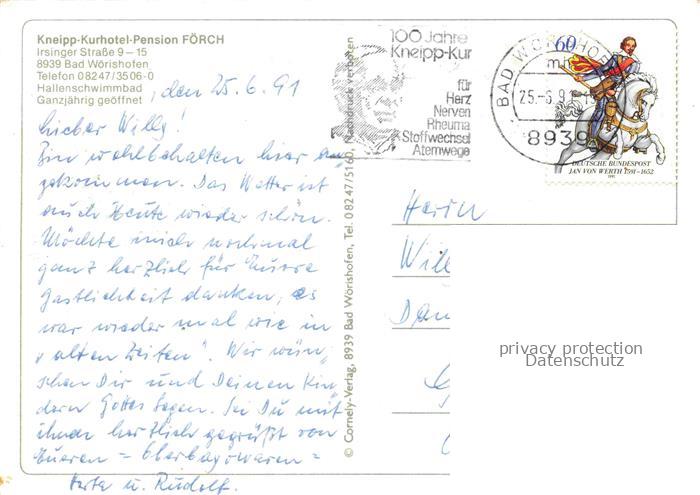 Kneipp-Kurhotel-Pension FÖRCH
Irsinger Straße 9 – 15
8939 Bad Wörishofen
Telefon 08247/3506-0
Hallenschwimmbad
Ganzjährig geöffnet
, den 25.6.91
Lieber Willy!
Bin wohlbehalten hier an
gekommen. Das Wetter ist
auch heute wieder schön.
Möchte mich nochmal
ganz herzlich für Eure
Gastlichkeit danken, es
war wieder mal wie in
"alten Zeiten". Wir wün,
schen Dir und Deinen Kin,
dern Gottes Segen. Sei Du mit
ihnen herzlich gegrüßt von
Eueren - Oberbayowaren -
Herta u. Rudolf.
© Cornely-Verlag, 8939 Bad Wörishofen, Tel. 08247/5160 Nachdruck verboten
100 Jahre
Kneipp-Kur
für
Herz
Nerven
Rheuma
Stoffwechsel
Atemwege
BAD WÖRISHOFEN
25.-6.91
8939
60
DEUTSCHE BUNDESPOST
JAN VON WERTH 1591-1652
1991
Herrn
Will
privacy protection
Datenschutz